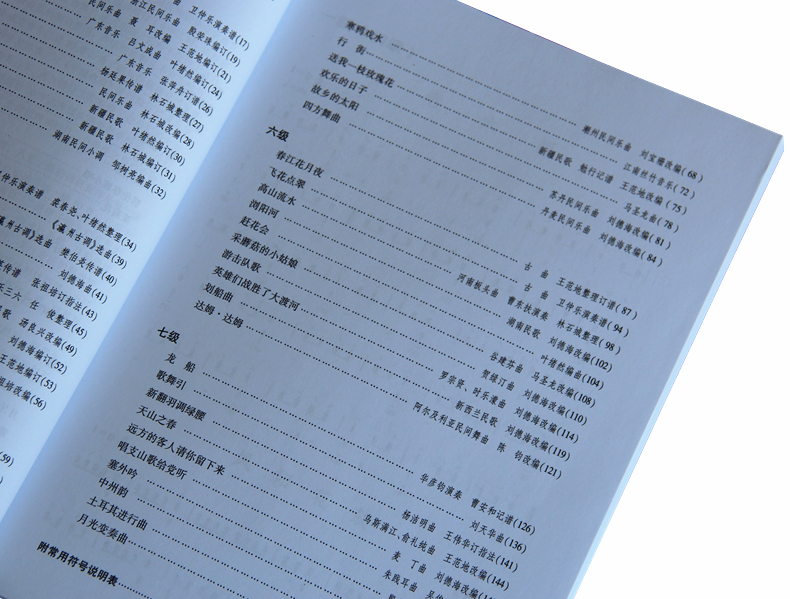 卫仲乐演奏谱(17)
江民间乐曲 殷荣珠编订(19)
民间乐曲 聂 耳改编 王范地编订(21)
广东音乐 吕文成曲 叶绪然编订(24)
广东音乐 张萍舟订谱(26)
杨廷果传谱 林石城整理(27)
民间乐曲 林石城改编(28)
新疆民歌 叶绪然编订(30)
新疆民歌 林石城编订(31)
湖南民间小调 邬树英编曲(32)
仲乐演奏谱 裴春尧、叶绪然整理(34)
《瀛州古调》选曲(39)
《瀛州古调》选曲 樊伯炎传谱(40)
刘德海曲(41)
传谱 张祖培订指法(43)
三六 任 俊整理(45)
歌 汤良兴改编(49)
刘德海编订(52)
王范地编订(53)
祖培改编(56)
(59)
寒鸦戏水 潮州民间乐曲 刘宝珊改编(68)
行 街 江南丝竹音乐(72)
送我一枝玫瑰花 新疆民歌 勉行记谱 王范地改编(75)
欢乐的日子 马圣龙曲(78)
故乡的太阳 苏丹民间乐曲 刘德海改编(81)
四方舞曲 丹麦民间乐曲 刘德海改编(84)
六级
春江花月夜 古 曲 王范地整理订谱(87)
飞花点翠 古 曲 卫仲乐演奏谱(94)
高山流水 河南板头曲 曹东扶演奏 林石城整理(98)
浏阳河 湖南民歌 刘德海改编(102)
赶花会 叶绪然编曲(104)
采蘑菇的小姑娘 谷建芬曲 马圣龙改编(108)
游击队歌 贺绿汀曲 刘德海改编(110)
英雄们战胜了大渡河 罗宗贤、时乐濛曲 刘德海改编(114)
划船曲 新西兰民歌 刘德海改编(119)
达姆·达姆 阿尔及利亚民间舞曲 陈 钧改编(121)
七级
龙 船 华彦钧演奏 曹安和记谱(126)
歌舞引 刘天华曲(136)
新翻羽调绿腰 杨洁明曲 王伟华订指法(141)
天山之春 乌斯满江、俞礼纯曲 王范地改编(144)
远方的客人请你留下来 麦 丁曲 刘德海改编
唱支山歌给党听 朱践耳曲
塞外吟
中州韵
土耳其进行曲
月光变奏曲
附常用符号说明表